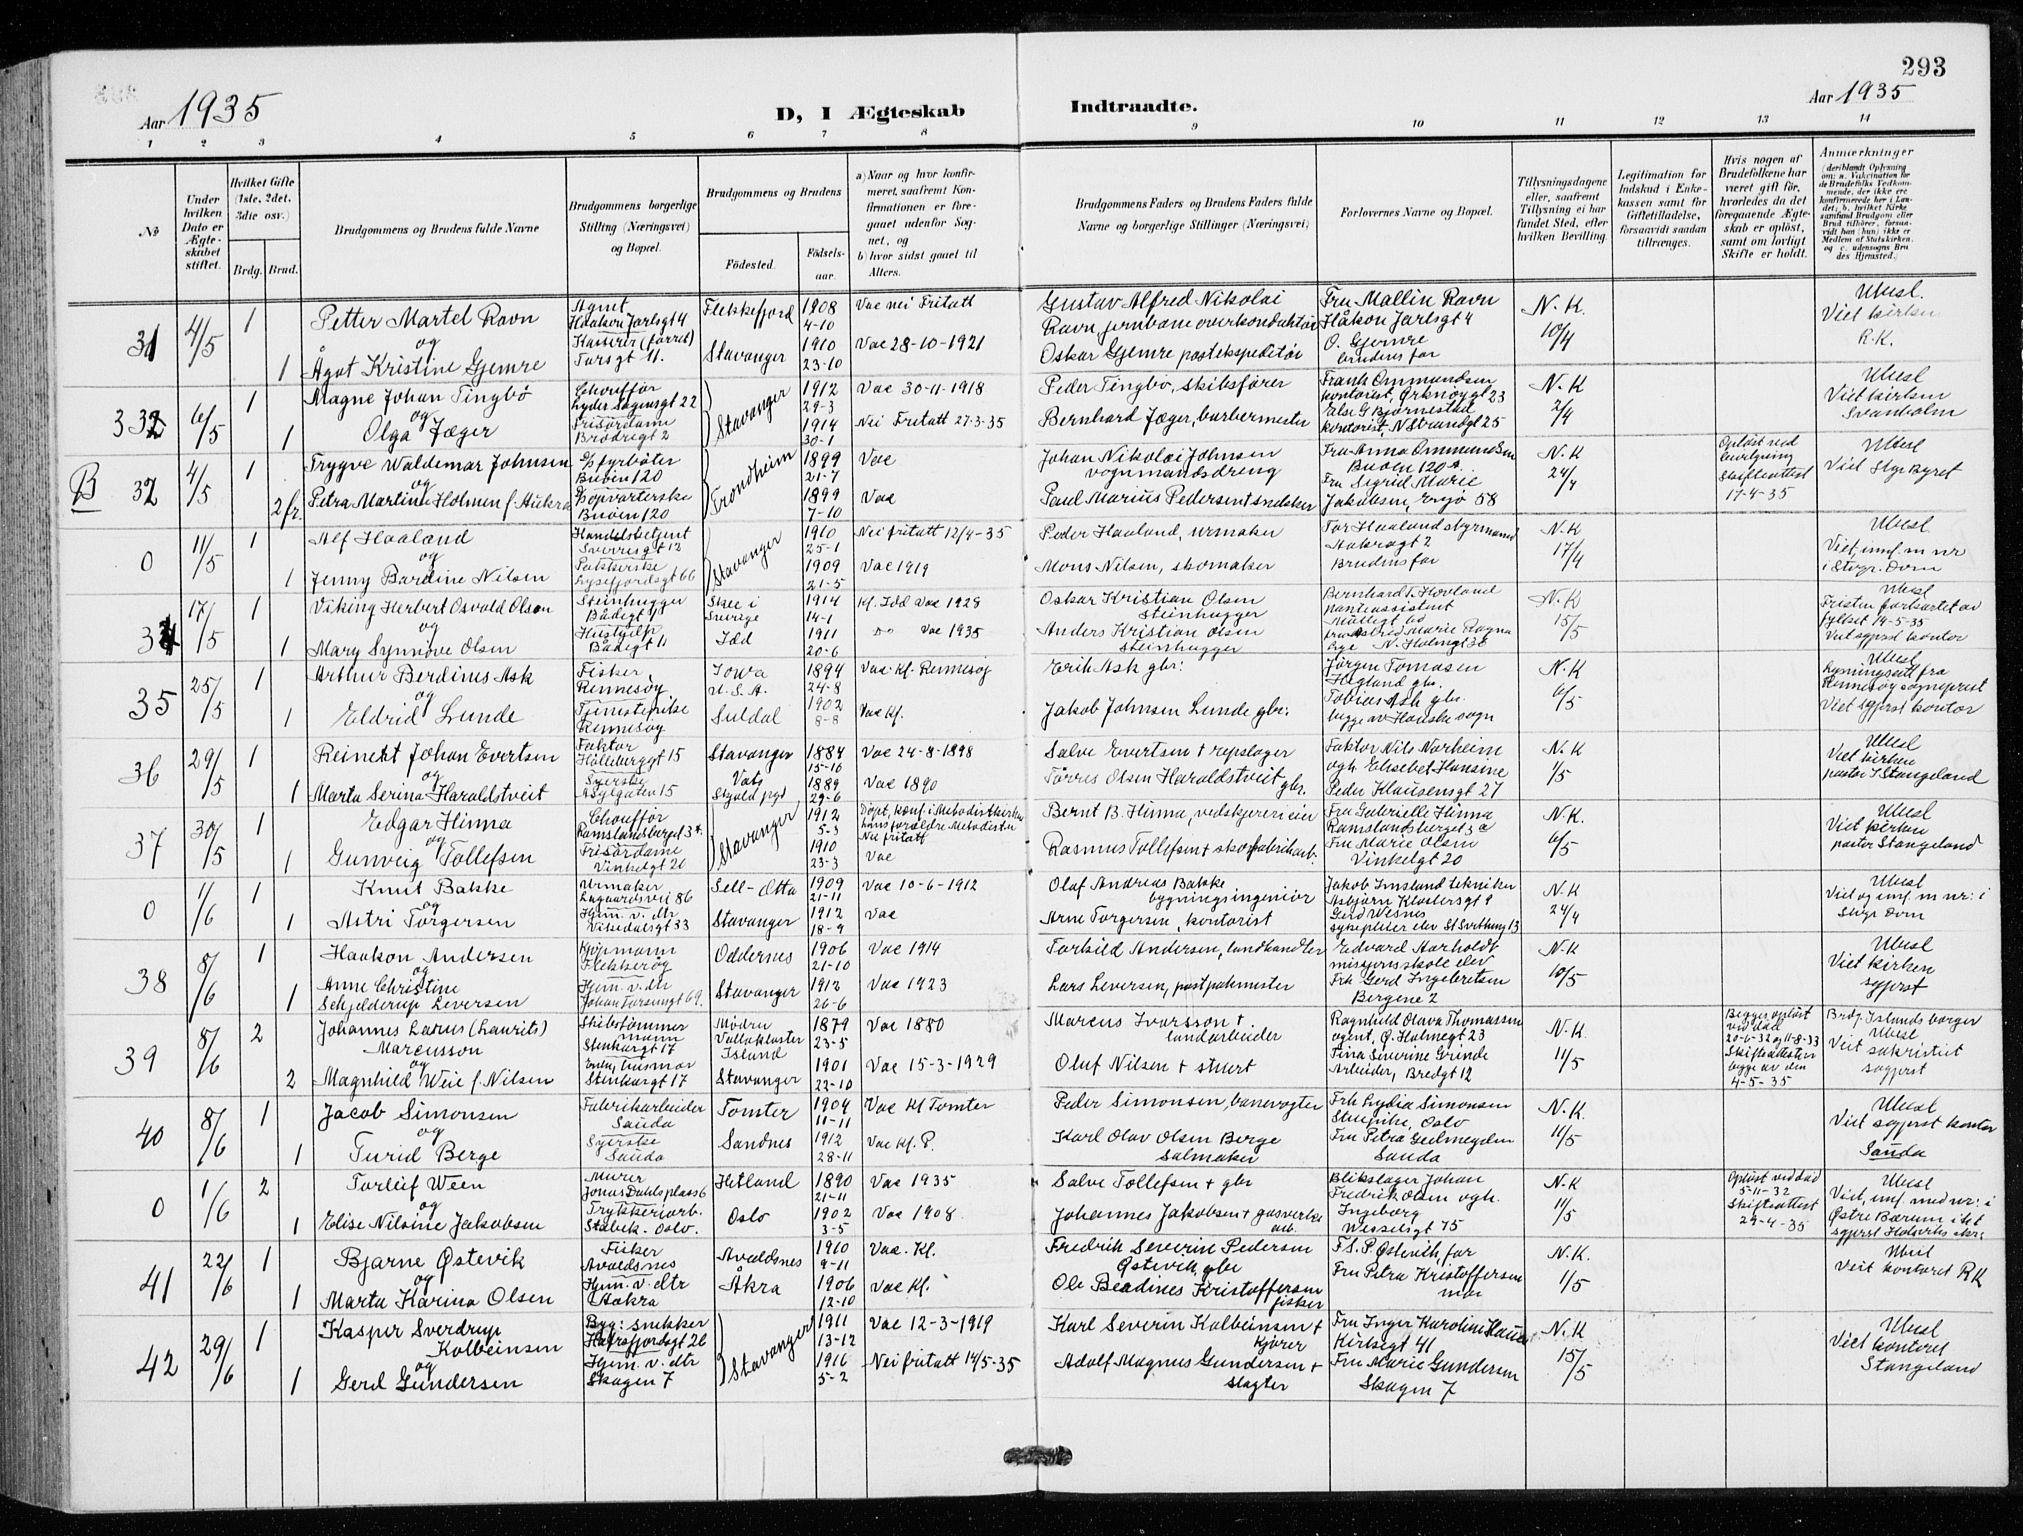 293
Aar 1935
D, I Ægteskab Indtraadte.
Aar 1935
1 2 3 4 5 6 7 8 9 10 11 12 13 14
№
Under hvilken Dato er Ægteskabet stiftet.
Hvilket Gifte (1ste, 2det, 3die osv.)
Brdg. Brud.
Brudgommens og Brudens fulde Navne
Brudgommens borgerlige Stilling (Næringsvei) og Bopæl.
Brudgommens og Brudens
Fødested.
Fødselsaar.
a) Naar og hvor konfirmeret, saafremt Konfirmationen er foregaaet udenfor Sognet, og
b) hvor sidst gaaet til Alters.
Brudgommens Faders og Brudens Faders fulde Navne og borgerlige Stillinger (Næringsvei)
Forlovernes Navne og Bopæl.
Tillysningsdagene eller, saafremt Tillysning ei har fundet Sted, efter hvilken Bevilling.
Legitimation for Indskud i Enkekassen samt for Giftetilladelse, forsaavidt saadan tiltrænges.
Hvis nogen af Brudefolkene har været gift før, hvorledes da det foregaaende Ægteskab er opløst, samt om lovligt Skifte er holdt.
Anmærkninger
31 4/5 1 Petter Martel Ravn Agent Haakon Jarlsgt 4 Flekkefjord 1908 4-10 Vac nei Fritatt Gustav Alfred Nikolai Ravn jernbaneoverkonduktør Fru Mallin Ravn Håkon Jarlsgt 4 N.K. 10/4 Ubesl. Viet kirken R.K.
og
1 Ågot Kristine Gjemre Kasserer Tarsgt 11. Stavanger 1910 23-10 Vac 28-10-1921 Oskar Gjemre postekspeditør O. Gjemre brudens far
332 6/5 1 Magne Johan Tingbø Chouffør Lyder Sagensgt 22 Stavanger 1912 29-3 Vac 30-11-1918 Peder Tingbø, skibsfører Frank Ommundsen kontorist, Orknøygt 23 N.K 2/4 Ubesl Viet kirken Svanholm
og
1 Olga Jæger Frisørdame Brødregt 2 1914 30-1 Nei Fritatt 27-3-35 Bernhard Jæger, barbermester Else G Bjørnestad kontorist, N Strandgt 25
B 32 4/5 1 Trygve Waldemar Johnsen fyrbøter Buøen 120 Trondheim 1899 21-7 Vac Johan Nikolai Johnsen vognmandsdreng Fru Anna Ommundsen Buøen 120 a. N.K 24/4 Skifteattest 17-4-35 Ubesl Viet Byret
og
2 fr. Petra Martine Holmen f. Aukra Buøen 120 1899 7-10 Vac Paul Marius Pedersen + snekker Fru Sigrid Marie Jakobsen, Engø 58
0 11/5 1 Alf Haaland Handelsbetjent Sverresgt 12 Stavanger 1910 25-1 Nei fritatt 12/4-35 Peder Haaland, urmaker Tor Haaland Aakragt 2 N.K 17/4 Ubesl Viet, innf. m nr i Svgr. Dom
og
1 Jenny Bardine Nilsen Lysefjordsgt 66 1909 21-5 Vac 1919 Mons Nilsen, skomaker Brudens far
34 17/5 1 Viking Herbert Osvald Olson Steinhugger Bådegt 11 Skee i Sverige 1914 14-1 Kf. Idd Vac 1928 Oskar Kristian Olsen Steinhugger Bernhard T. Hovland panteassistent N.K 15/5 Ubesl Fristen forkortet av fylket 14-5-35 Viet sogprst kontor
og
1 Mary Synnøve Olsen Hushjelp Bådegt 11 Idd 1911 20-6 do Vac 1935 Anders Kristian Olsen Steinhugger N. Holmegt 38
35 25/5 1 Arthur Berdines Ask Fisker Rennesøy Iowa U.S.A. 1894 24-8 Vac. Kf. Rennesøy Erik Ask gbr: Jørgen Tomasen Hegland gbr. N.K 6/5 Ubesl Lysningsatt fra Rennesøy sogneprest Viet sogprst kontor
og
1 Eldrid Lunde Tjenestepike Rennesøy Suldal 1902 8-8 Vac Kf. Jakob Johnsen Lunde gbr: Tobias Ask gbr. begge av Hauske sogn
36 29/5 1 Reinert Johan Evertsen Faktor Hillebergsgt 15 Stavanger 1884 15-16 Vac 24-8-1898 Salve Evertsen + repslager Faktor Nils Norheim N.K 1/5 Ubesl Viet kirken pastor T Stangeland
og
1 Marta Serina Haraldstveit Syerske Asylgaten 15 Vats Skjold pgd 1889 29-6 Vac 1890 Tørres Olsen Haraldstveit gbr. ogh Elisebet Hansine Peder Klausensgt 27
37 30/5 1 Edgar Hinna Chouffør Ramslandsberget 3 a. Stavanger 1912 5-3 Døpt, konf. i Metodistkirken hans forældre Metodister Nei fritatt Bernt B. Hinna, vedskjæreri eier Fru Gabrielle Hinna Ramslandsberget 3 a N.K. 6/5 Ubesl Viet kirken pastor Stangeland
og
1 Gunveig Tollefsen Frisørdame Vinkelgt 20 1910 23-3 Vac Rasmus Tollefsen + skofabrikarb. Fru Marie Olsen Vinkelgt 20
0 1/6 1 Knut Bakke Urmaker Lagaardsvei 86 Sell-Otta 1909 21-11 Vac 10-6-1912 Olaf Andreas Bakke bygningsingeniør Jakob Imsland tekniker Asbjørn Klostersgt 9 N.K 24/4 Ubesl Viet og innf. m nr: i Svgr Dom
og
1 Astri Torgersen Hjem. v. dtr Vikedalsgt 33 Stavanger 1912 18-9 Vac Arne Torgersen, kontorist Gerd Wesnes sykepleier elev St Svithung 13
38 8/6 1 Haakon Andersen Kjøpmann Flekkerøy Oddernes 1906 21-10 Vac 1914 Torkild Andersen, landhandler Edvard Aarholdt misjonsskole elev N.K 10/5 Ubesl Viet kirken sogprst
og
1 Anne Christine Schjelderup Leversen Hjem. v. dtr Johan Torsunsgt 69. Stavanger 1912 26-6 Vac 1923 Lars Leversen, postpakmester Frk Gerd Ingebretsen Bergene 2
39 8/6 2 Johannes Larus (Laurits) Marcusson Skibstømmermann Stenkargt 17 Island 1879 23-5 Vac 1880 Marcus Ivarsson + landarbeider Ragnhild Olava Thomassen agent, Ø. Holmegt 23 N.K. 11/5 Begges opløst ved død 20-6-32 og 11-8-33 Skifteattester begge av den 4-5-35 Brdg. Islands borger Ubesl Viet sakristiet sogprst
og
2 Magnhild Weie f. Nilsen Enke, husmor Stenkargt 17 Stavanger 1901 22-10 Vac 15-3-1929 Oluf Nilsen + stuert Tina Severine Grinde Arbeider, Bredgt 12
40 8/6 1 Jacob Simonsen Fabrikarbeider Sauda Tomter 1904 11-11 Vac Kf Tomter Peder Simonsen, banevogter Frk Lydia Simonsen Stuepike, Oslo N.K. 11/5 Ubesl Viet sogprst kontor Sauda
og
1 Turid Berge Syerske Sauda Sandnes 1912 28-11 Vac Kf. P. Karl Olav Olsen Berge Salmaker Fru Petra Geelmeyden Sauda
0 1/6 2 Torleif Ween Murer Jonas Dahls plass 6 Hetland 1890 21-11 Vac 1935 Salve Tollefsen + gbr Blikslager Johan Fredrik Olsen ogh. N.K 11/5 Opløst ved død 5-11-32 Skifteattest 29-4-35 Ubesl Viet, innf. med nr: i Østre Bærum
og
1 Elise Nilsine Jakobsen Trykkeriarb. Stabek. Oslo. Oslo 1902 3-5 Vac 1908. Johannes Jakobsen + gasverks arb. Ingeborg Wesselsgt 75
41 22/6 1 Bjarne Østevik Fisker Avaldsnes Avaldsnes 1910 9-11 Vac. Kf. Fredrik Severin Pedersen Østevik gbr F. S. P. Østevik, far N.K. 1/5 Ubesl Viet kontoret RK
og
1 Marta Karina Olsen Hjem. v. dtr Aakra Åkra 1906 12-10 Vac Kf. Ole Beadines Kristoffersen fisker Fru Petra Kristoffersen mor
42 29/6 1 Kasper Sverdrup Kolbeinsen Byg: snekker Hafrsfjordsgt 26 Stavanger 1911 13-12 Vac 12-3-1919 Karl Severin Kolbeinsen + kjører Fru Inger Karoline Kirkegt 41 N.K 15/5 Ubesl Viet kontoret Stangeland
og
1 Gerd Gundersen Hjem. v. dtr Skagen 7 1916 5-2 Nei fritatt 14/5-35 Adolf Magnus Gundersen + slagter Fru Marie Gundersen Skagen 7